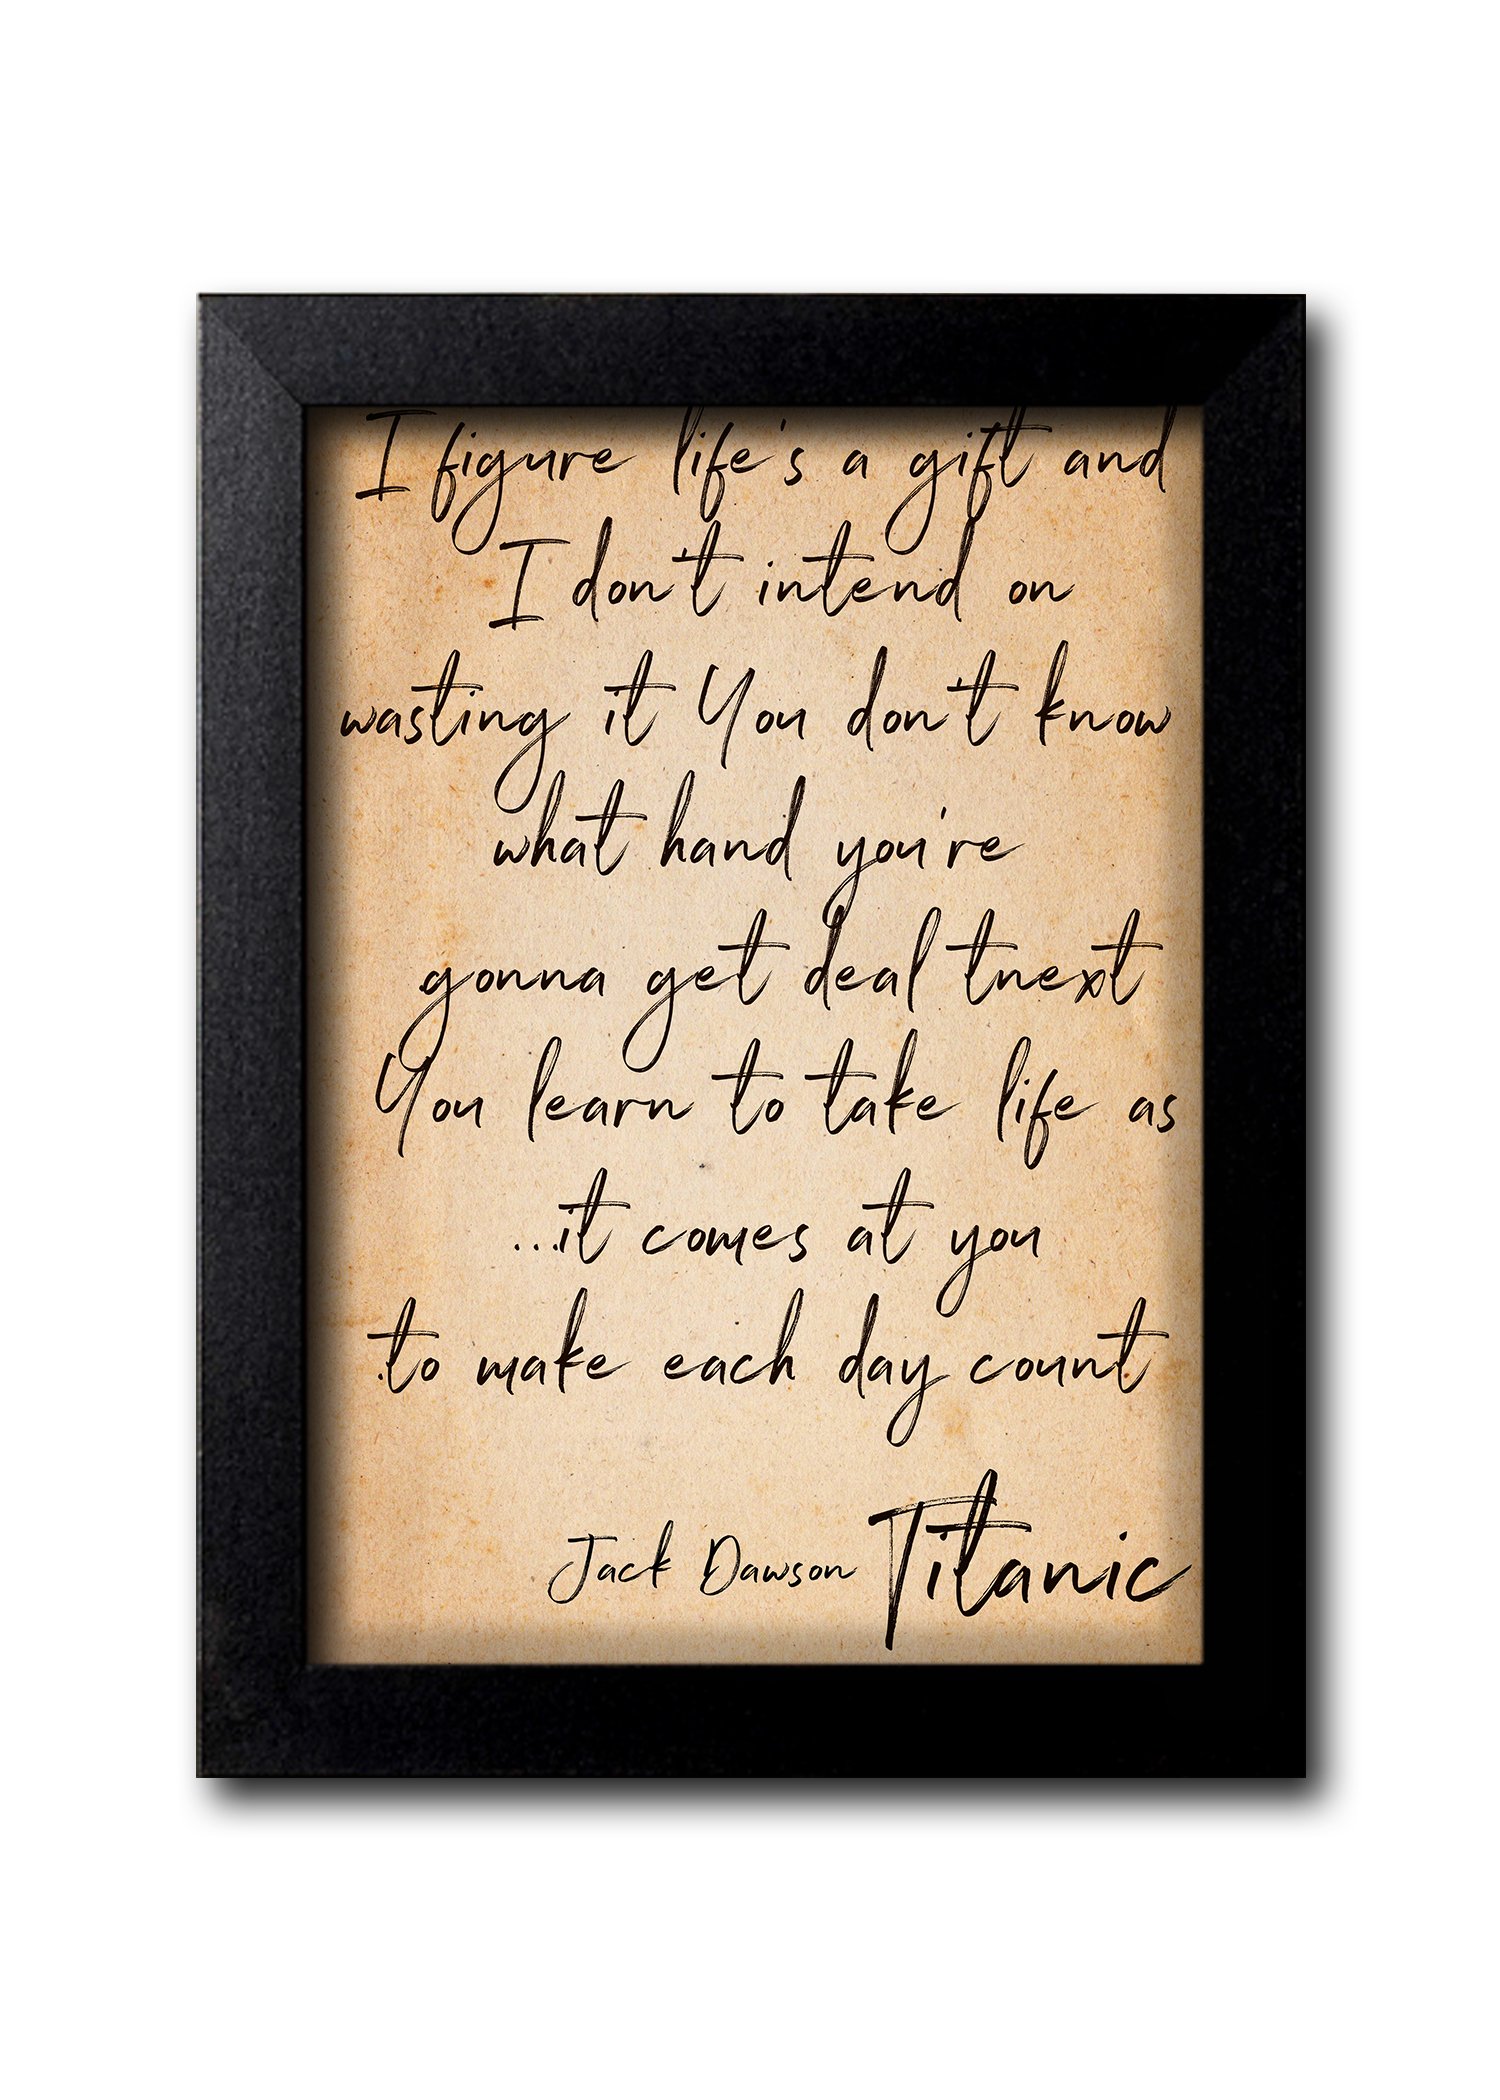 I figure life's a gift and
I don't intend on
wasting it You don't know
what hand you're
gonna get deal tnext
You learn to take life as
...it comes at you
.to make each day count
Jack Dawson Titanic